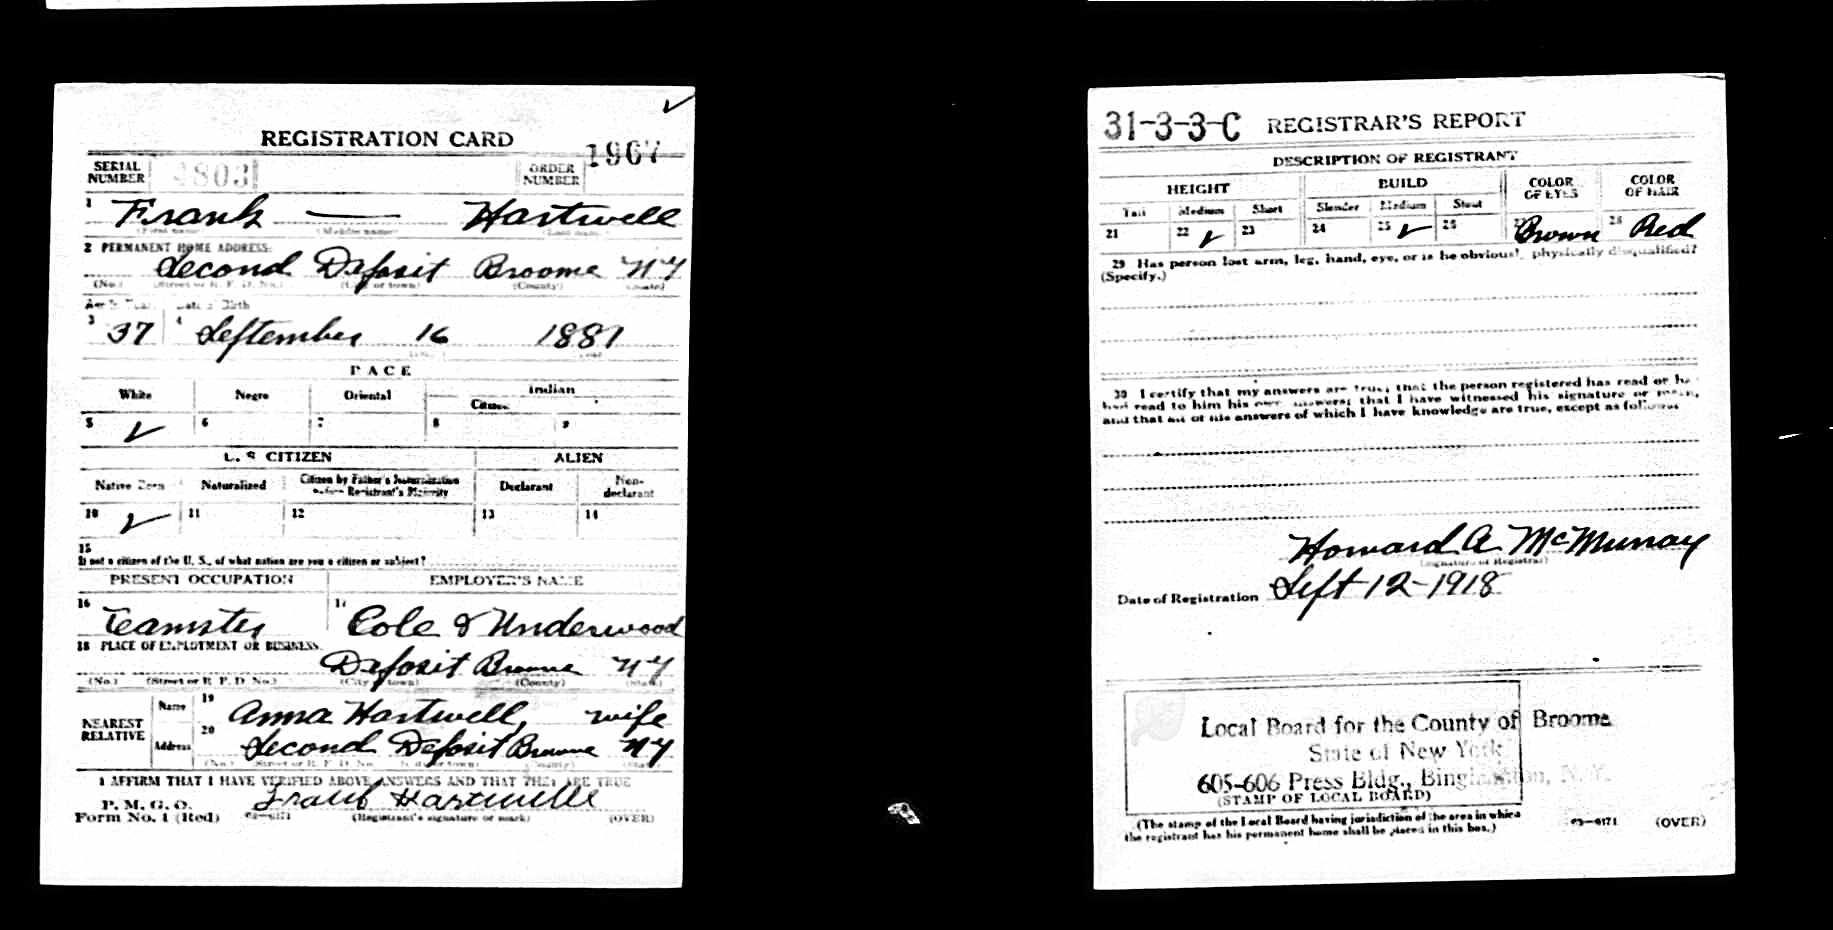 REGISTRATION CARD
SERIAL NUMBER 803 ORDER NUMBER 1967
1 Frank — Hartwell
(First name) (Middle name) (Last name)
2 PERMANENT HOME ADDRESS:
Second Deposit Broome NY
(No.) (Street or R. F. D. No.) (City or town) (County) (State)
Age in Years Date of Birth
3 37 4 September 16 1881
RACE
White Negro Oriental Indian
Citizen
5 ✓ 6 7 8 9
U. S. CITIZEN ALIEN
Native Born Naturalized Citizen by Father's Naturalization before Registrant's Majority Declarant Non-declarant
10 ✓ 11 12 13 14
15
If not a citizen of the U. S., of what nation are you a citizen or subject?
PRESENT OCCUPATION EMPLOYER'S NAME
16 Teamster 17 Cole & Underwood
18 PLACE OF EMPLOYMENT OR BUSINESS:
Deposit Broome NY
(No.) (Street or R. F. D. No.) (City or town) (County) (State)
NEAREST RELATIVE Name 19 Anna Hartwell, wife
Address 20 Second Deposit Broome NY
(No.) (Street or R. F. D. No.) (City or town) (County) (State)
I AFFIRM THAT I HAVE VERIFIED ABOVE ANSWERS AND THAT THEY ARE TRUE
P. M. G. O.
Form No. 1 (Red) 03—6171 Frank Hartwell
(Registrant's signature or mark) (OVER)
31-3-3-C REGISTRAR'S REPORT
DESCRIPTION OF REGISTRANT
HEIGHT BUILD COLOR OF EYES COLOR OF HAIR
Tall Medium Short Slender Medium Stout
21 22 ✓ 23 24 25 ✓ 26 27 Brown 28 Red
29 Has person lost arm, leg, hand, eye, or is he obviously physically disqualified?
(Specify.)
30 I certify that my answers are true; that the person registered has read or has
had read to him his own answers; that I have witnessed his signature or mark,
and that all of his answers of which I have knowledge are true, except as follows:
Howard A McMurray
(Signature of Registrar)
Date of Registration Sept 12-1918
Local Board for the County of Broome
State of New York
605-606 Press Bldg., Binghamton, N. Y.
(STAMP OF LOCAL BOARD)
(The stamp of the Local Board having jurisdiction of the area in which
the registrant has his permanent home shall be placed in this box.)
03—6171 (OVER)